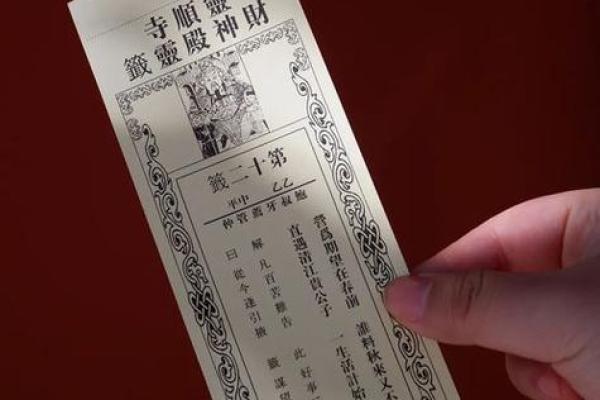 靈順寺
財神殿靈籤
第十二籤
乙乙 中平
鮑叔牙薦管仲
營爲期望在春前 誰料秋來又不
直遇清江貴公子 一生活計始
解 凡百苦難告 此好事
曰 從今逢引 籤 謀望